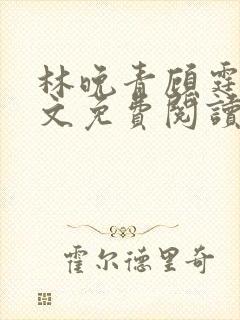 林晚青顾霆
文免費閱讀
霍尔德里奇